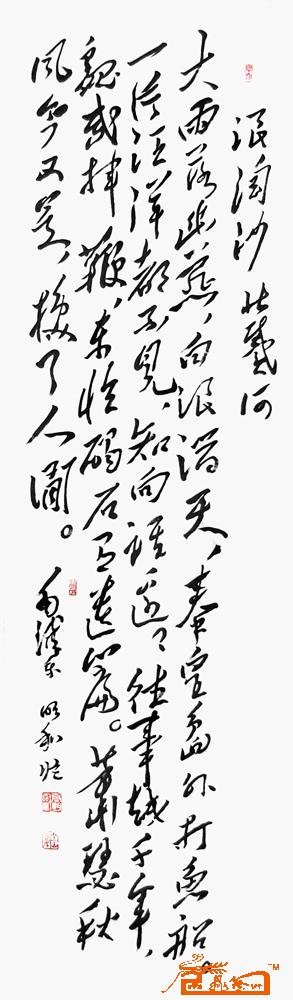 浪淘沙 北戴河
大雨落幽燕,白浪滔天,秦皇岛外打鱼船。
一片汪洋都不见,知向谁边?往事越千年,
魏武挥鞭,东临碣石有遗篇。萧瑟秋
风今又是,换了人间。
毛泽东 临